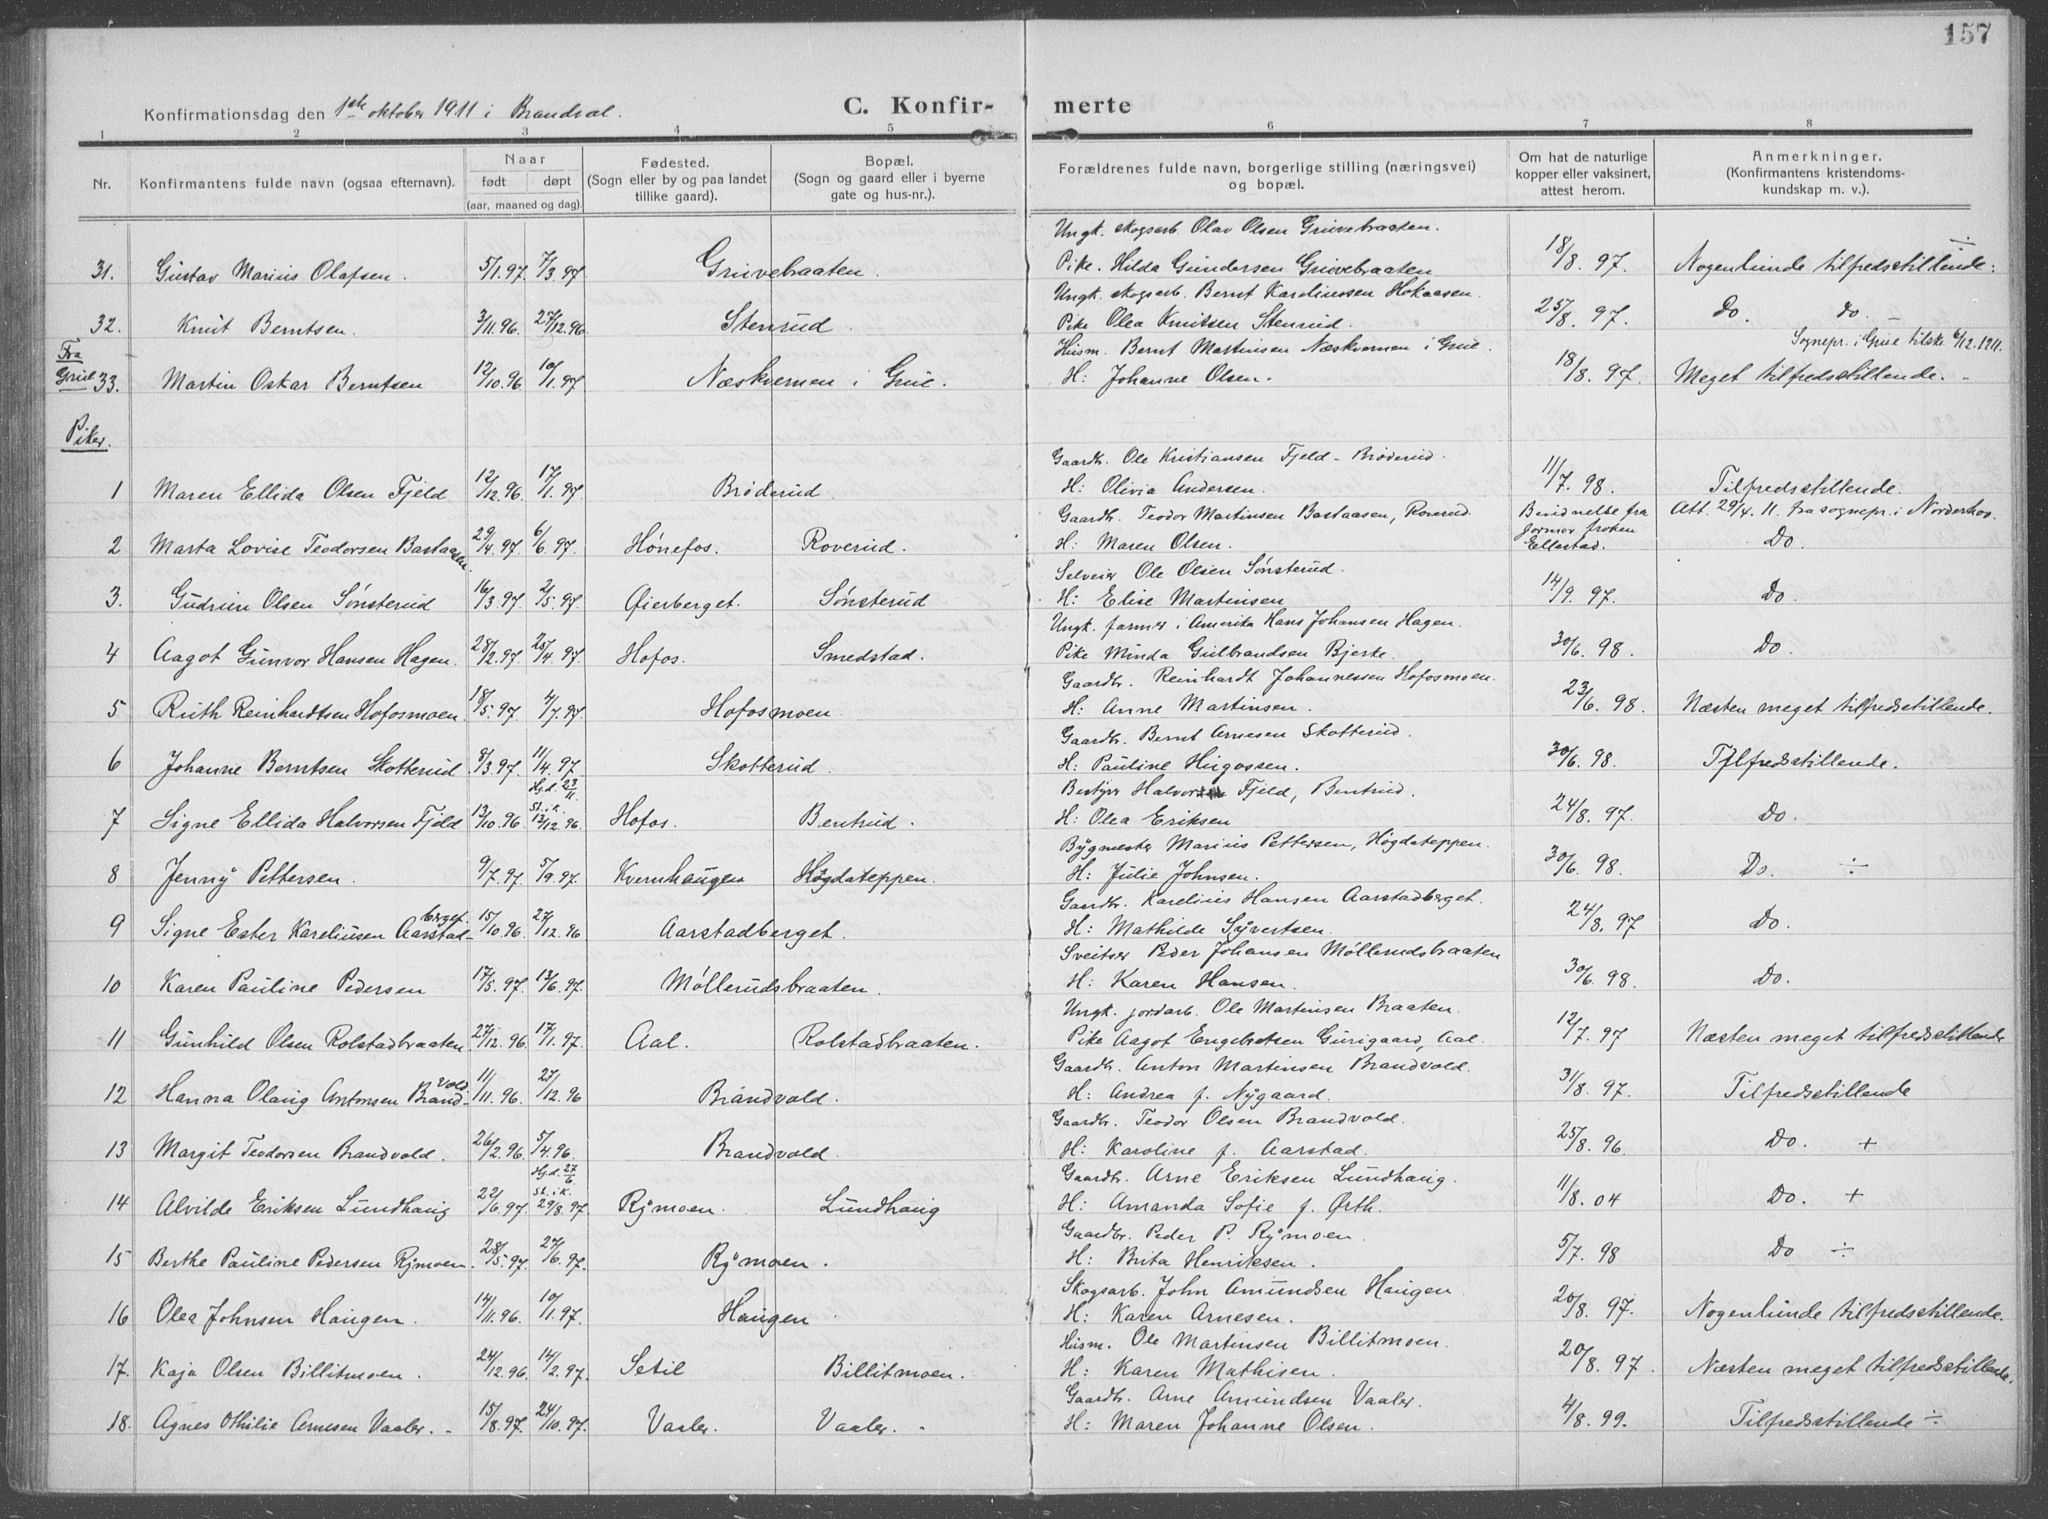 157
Konfirmationsdag den 1ste oktober 1911 i Brandval. C. Konfir- merte
1 2 3 4 5 6 7 8
Nr. Konfirmantens fulde navn (ogsaa efternavn). Naar født døpt (aar, maaned og dag). Fødested. (Sogn eller by og paa landet tillike gaard). Bopæl. (Sogn og gaard eller i byerne gate og hus-nr.). Forældrenes fulde navn, borgerlige stilling (næringsvei) og bopæl. Om hat de naturlige kopper eller vaksinert, attest herom. Anmerkninger. (Konfirmantens kristendoms- kundskap m. v.).
Ungk. skogsarb. Olav Olsen Gruvebraaten.
31. Gustav Marius Olafsen. 5/1.97. 7/3.97. Gruvebraaten. Pike. Hilda Gundersen Gruvebraaten 18/8.97. Nogenlunde tilfredsstillende. ÷
Ungk. skogsarb. Bernt Karelinssen Hokaasen.
32. Knut Berntsen. 3/11.96. 27/12.96. Stenrud. Pike Olea Knutsen Stenrud. 25/8.97. Do. do.
Husm. Bernt Martinsen Næskvernen i Grue. Sognepr. i Grue tilsk. 6/12.1911.
Fra Grue 33. Martin Oskar Berntsen 12/10.96 10/1.97 Næskvernen i Grue. H: Johanne Olsen. 18/8.97. Meget tilfredsstillende.
Piker.
Gaardbr. Ole Kristiansen Fjeld - Brøderud.
1 Maren Ellida Olsen Fjeld 12/12.96 17/1.97 Brøderud. H: Olivia Andersen. 11/7.98. Tilfredsstillende.
Gaardbr. Teodor Martinsen Bastaasen, Roverud. Bevidnelse fra Jormor frøken Ellestad. Att. 29/4.11. fra sognepr. i Norderhov.
2 Marta Lovise Teodorsen Bastaasen. 29/4.97. 6/6.97. Hønefos. Roverud. H: Maren Olsen. Do.
Selveier Ole Olsen Sønsterud.
3. Gudrun Olsen Sønsterud 16/3.97. 2/5.97. Øierberget. Sønsterud H: Elise Martinsen 14/9.97. Do.
Ungk. farmer i Amerika Hans Johansen Hagen.
4 Aagot Gunvor Hansen Hagen. 28/2.97. 25/4.97. Hofos. Smedstad. Pike Minda Gulbrandsen Bjerke. 30/6.98. Do.
Gaardbr. Reinhardt Johannessen Hofosmoen.
5 Ruth Reinhardtsen Hofosmoen 18/5.97. 4/7.97 Hofosmoen. H: Anne Martinsen. 23/6.98. Næsten meget tilfredsstillende.
Gaardbr. Bernt Arnesen Skotterud.
6 Johanne Berntsen Skotterud 8/3.97. 11/4.97 Skotterud. H: Pauline Hugossen. 30/6.98. Tilfredsstillende.
Hj.d. 23/11. Bestyrer Halvorsen Fjeld, Bentrud.
7 Signe Ellida Halvorsen Fjeld 13/10.96 st. i k. 13/12.96. Hofos. Bentrud. H: Olea Eriksen 24/8.97. Do.
Bygmester Marius Pettersen, Høgdateppen.
8 Jenny Pettersen. 9/7.97. 5/9.97. Kvernhaugen Høgdateppen. H: Julie Johnsen. 30/6.98. Do. ÷
Gaardbr. Karelius Hansen Aarstadberget.
9 Signe Ester Kareliusen Aarstad-berget. 15/10.96. 27/12.96 Aarstadberget. H: Mathilde Syvertsen. 24/8.97 Do.
Sveitser Peder Johansen Møllerudsbraaten
10 Karen Pauline Pedersen 17/5.97. 13/6.97. Møllerudsbraaten. H: Karen Hansen. 30/6.98. Do.
Ungk. jordarb. Ole Martinsen Braaten.
11 Gunhild Olsen Rolstadbraaten 27/12.96. 17/1.97. Aal. Rolstadbraaten. Pike Aagot Engebretsen Gurigaard, Aal. 12/7.97 Næsten meget tilfredsstillende
Gaardbr. Anton Martinsen Brandvold.
12 Hanna Olaug Antonsen Brand-vold. 11/11.96. 27/12.96 Brandvold. H: Andrea f. Nygaard. 31/8.97. Tilfredsstillende
Gaardbr. Teodor Olsen Brandvold.
13 Margit Teodorsen Brandvold. 26/2.96. 5/4.96. Brandvold. H: Karoline f. Aarstad. 25/8.96. Do. +
Hj.d. 27/6. Gaardbr. Arne Eriksen Lundhaug.
14 Alvilde Eriksen Lundhaug 22/6.97. st. i k. 29/8.97. Rymoen. Lundhaug H: Amanda Sofie f. Ørth. 11/8.04 Do. +
Gaardbr. Peder P. Rymoen.
15 Berthe Pauline Pedersen Rymoen. 28/5.97. 27/6.97. Rymoen. H: Brita Henriksen. 5/7.98 Do ÷
Skogsarb. John Amundsen Haugen
16 Olea Johnsen Haugen. 14/11.96. 10/1.97. Haugen H: Karen Arnesen. 20/8.97. Nogenlunde tilfredsstillende.
Husm. Ole Martinsen Billitmoen.
17. Kaja Olsen Billitmoen. 24/12.96 14/2.97. Setil Billitmoen. H: Karen Mathisen. 20/8.97. Næsten meget tilfredsstillende.
Gaardbr. Arne Amundsen Vaaler.
18. Agnes Othilie Arnesen Vaaler. 15/8.97. 24/10.97. Vaaler. Vaaler. H: Maren Johanne Olsen. 4/8.99. Tilfredsstillende ÷